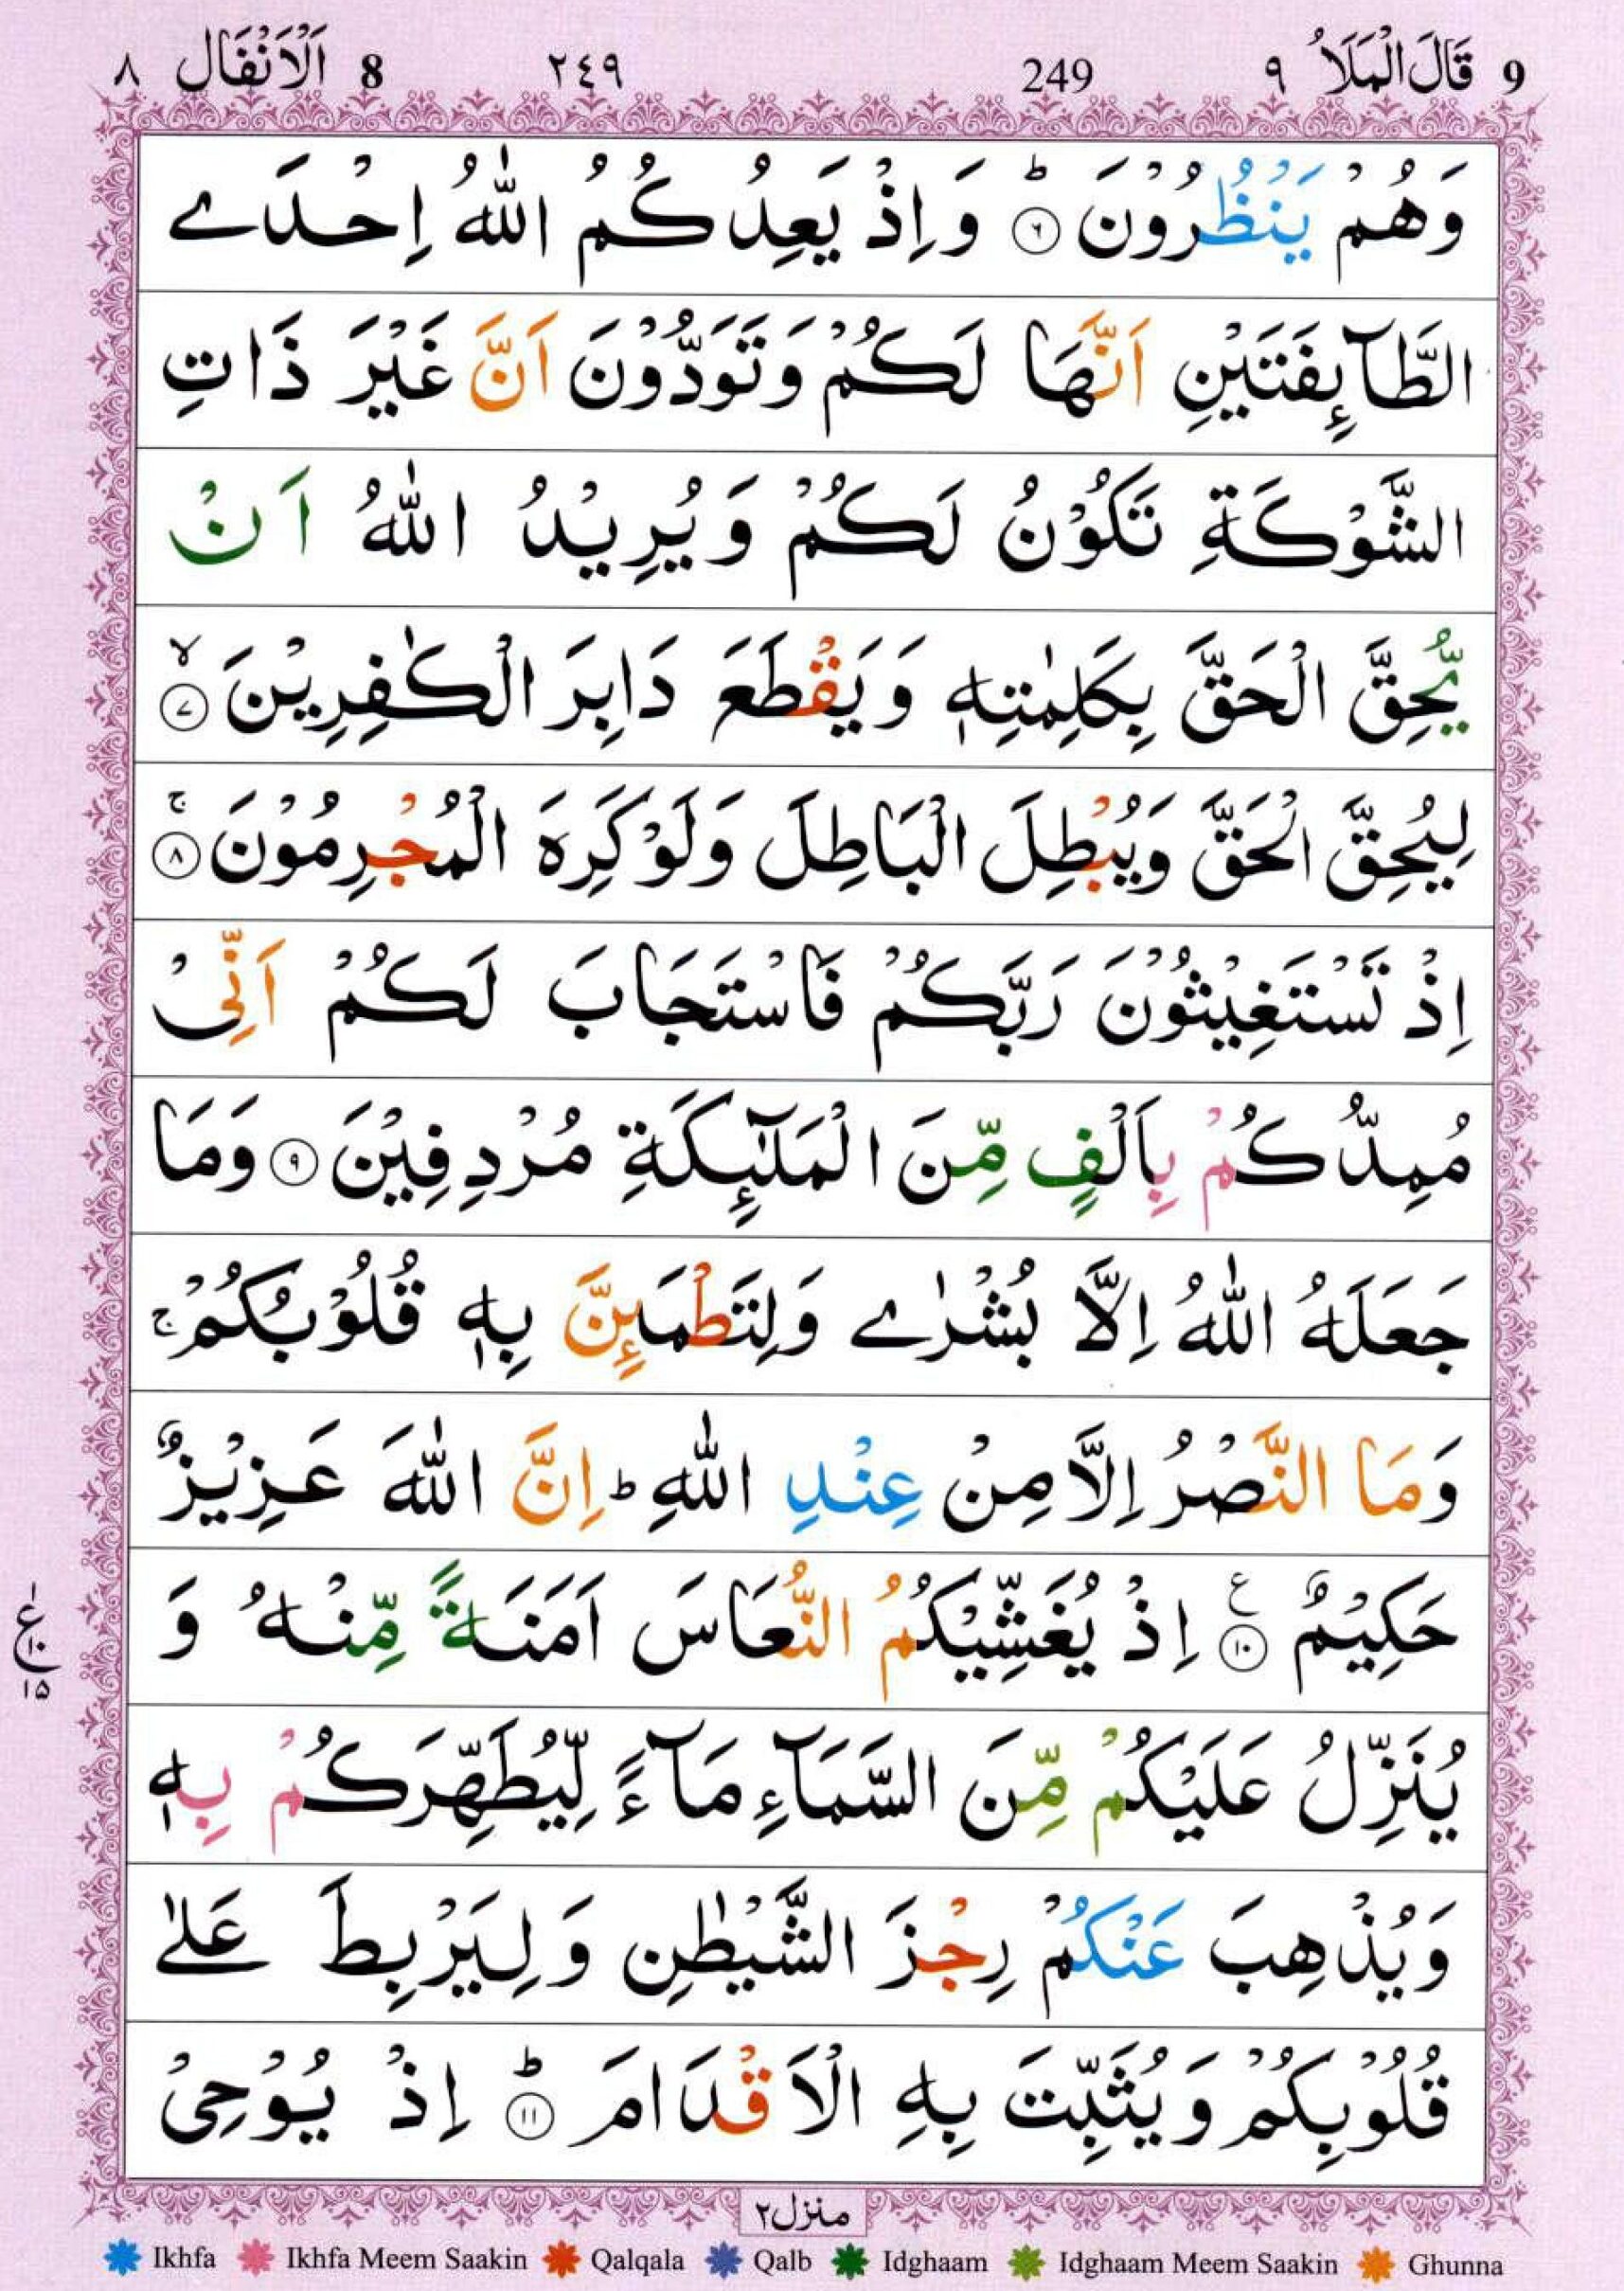 9 قَالَ الْمَلَاُ ٩ 249 ٢٤٩ 8 اَلْاَنْفَال ٨
وَهُمْ يَنْظُرُوْنَ ؕ۝٦ وَ اِذْ يَعِدُكُمُ اللّٰهُ اِحْدَے
الطَّآىِٕفَتَيْنِ اَنَّهَا لَكُمْ وَتَوَدُّوْنَ اَنَّ غَيْرَ ذَاتِ
الشَّوْكَةِ تَكُوْنُ لَكُمْ وَ يُرِيْدُ اللّٰهُ اَنْ
يُّحِقَّ الْحَقَّ بِكَلِمٰتِهٖ وَ يَقْطَعَ دَابِرَ الْكٰفِرِيْنَ ۙ۝٧
لِيُحِقَّ الْحَقَّ وَيُبْطِلَ الْبَاطِلَ وَلَوْ كَرِهَ الْمُجْرِمُوْنَ ۚ۝٨
اِذْ تَسْتَغِيْثُوْنَ رَبَّكُمْ فَاسْتَجَابَ لَكُمْ اَنِّىْ
مُمِدُّكُمْ بِاَلْفٍ مِّنَ الْمَلٰٓىِٕكَةِ مُرْدِفِيْنَ ۝٩ وَمَا
جَعَلَهُ اللّٰهُ اِلَّا بُشْرٰے وَلِتَطْمَىِٕنَّ بِهٖ قُلُوْبُكُمْ ۚ
وَمَا النَّصْرُ اِلَّا مِنْ عِنْدِ اللّٰهِ ؕ اِنَّ اللّٰهَ عَزِيْزٌ
حَكِيْمٌ ۝١٠ ع اِذْ يُغَشِّيْكُمُ النُّعَاسَ اَمَنَةً مِّنْهُ وَ
١ ع ١٠ ١٥
يُنَزِّلُ عَلَيْكُمْ مِّنَ السَّمَآءِ مَآءً لِّيُطَهِّرَكُمْ بِهٖ
وَيُذْهِبَ عَنْكُمْ رِجْزَ الشَّيْطٰنِ وَ لِيَرْبِطَ عَلٰے
قُلُوْبِكُمْ وَ يُثَبِّتَ بِهِ الْاَقْدَامَ ؕ۝١١ اِذْ يُوْحِىْ
منزل٢
Ikhfa Ikhfa Meem Saakin Qalqala Qalb Idghaam Idghaam Meem Saakin Ghunna